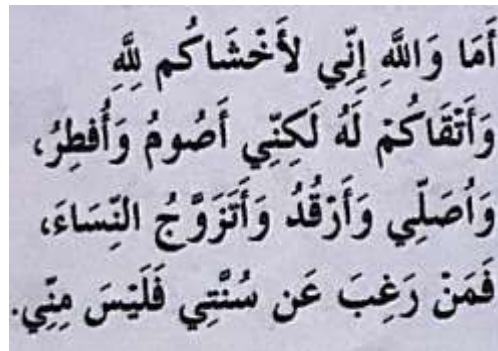 أَمَا وَاللَّهِ إِنِّي لأَخْشَاكُم لِلَّهِ
وَأَتْقَاكُمْ لَهُ لَكِنِّي أَصُومُ وَأُفطِرُ،
وَاُصَلِّي وَأَرْقُدُ وَأَتَزَوَّجُ النِّسَاءَ،
فَمَنْ رَغِبَ عَن سُنَّتِي فَلَيْسَ مِنِّي.